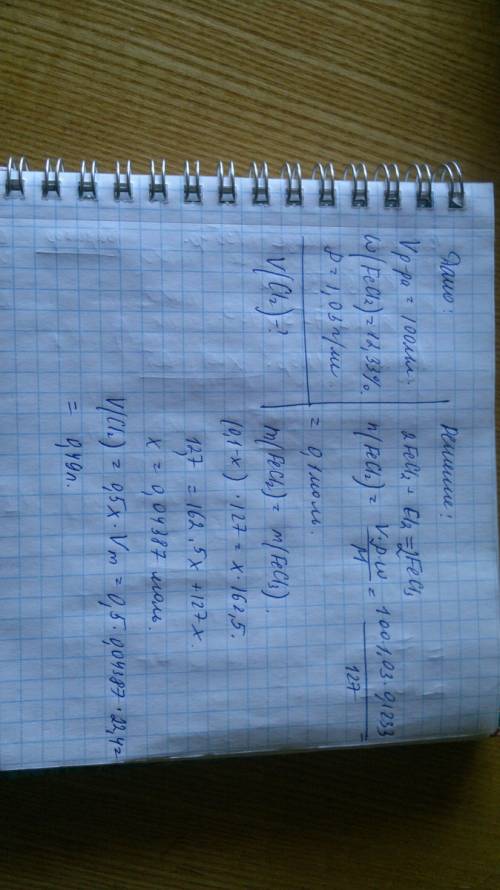 Дано:
Vр-ра = 100мл.
ω(FeCl₂) = 12,33%.
ρ = 1,03г/мл.
V(Cl₂) - ?
Решение:
2FeCl₂ + Cl₂ = 2FeCl₃
n(FeCl₂) = V·ρ·ω / M = 100·1,03·0,1233 / 127 =
= 0,1моль.
m(FeCl₂) = m(FeCl₃).
(0,1-x)·127 = x·162,5.
12,7 = 162,5x + 127x.
x = 0,04387 моль.
V(Cl₂) = 0,5x·Vm = 0,5·0,04387·22,4=
= 0,49л.